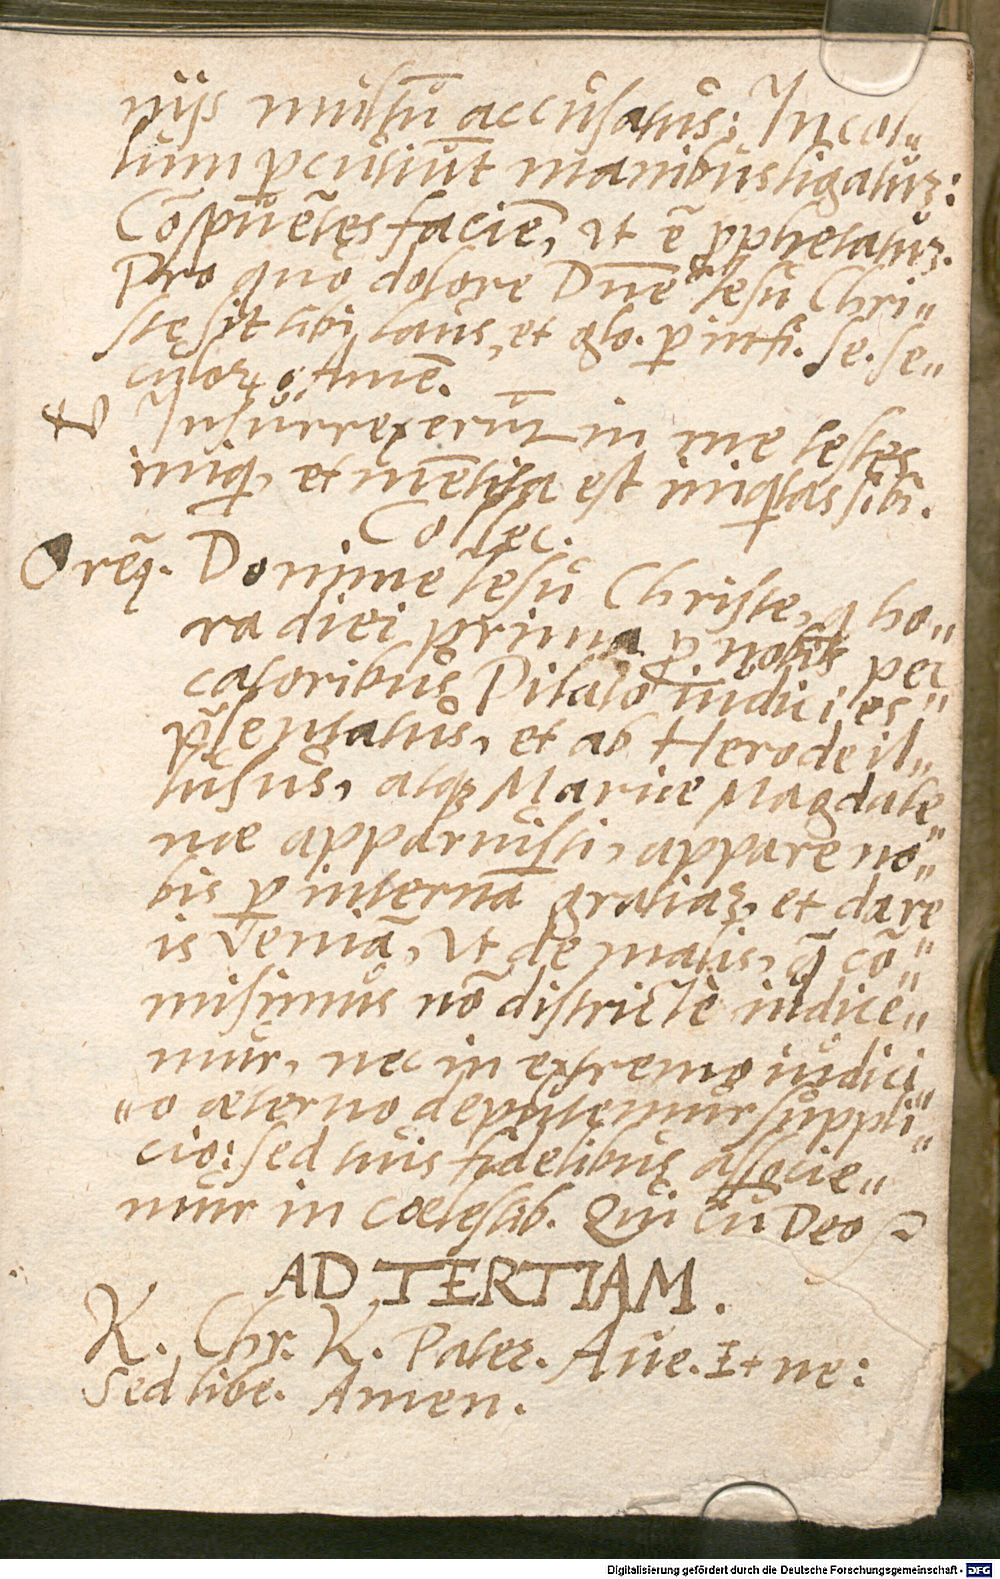 nijs multū accusatus: In col„
lum ꝑcutiūt manibus ligatuꝫ:
Cōspuētes faciē, ut ē ꝓphetatuꝫ.
Pro quo dolore Dn̄e Iesu Chri„
ste sit tibi laus, et glo. ꝑ infi. se. se„
culoꝝ. Amē.
℣ Insurrexerūt in me testes
iniqi, et mētita est iniqitas sibi.
Collec.
Orem9. Domine Iesu Christe, q ho„
ra diei prima ꝓ nobis pec
catoribus Pilato iudici es„
p̄sentatus, et ab Herode il„
lusus, atqꝫ Mariæ Magdale
næ apparuisti, appare no„
bis ꝑ internā gratiaꝫ, et dare
is veniā, ut de malis, q̄ cō„
misimus nō districtè iudice„
mur, nec in extremo iudici„
„o æterno deputemur suppli„
cio: sed tuis fidelibus associe„
mur in coelestib. Qui cū Deo
AD TERTIAM.
K. Chr. K. Pater. Aue. Et ne:
Sed libe. Amen.
Digitalisierung gefördert durch die Deutsche Forschungsgemeinschaft - DFG